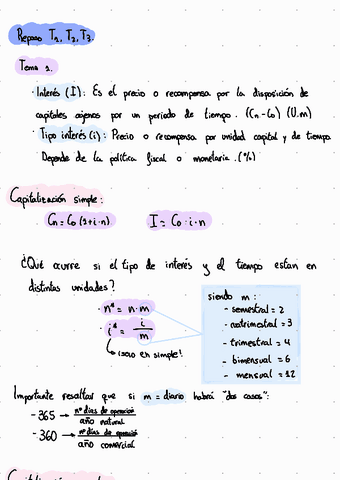 Repaso T1, T2, T3.
Tema 1.
· Interés (I): Es el precio o recompensa por la disposición de
capitales ajenos por un periodo de tiempo. (Cn - C0) (U.m)
· Tipo interés (i): Precio o recompensa por unidad capital y de tiempo
Depende de la política fiscal o monetaria. (%)
Capitalización simple:
Cn = C0 (1+i·n)
I = C0 · i · n
¿Qué ocurre si el tipo de interés y el tiempo estan en
distintas unidades?
· n* = n · m
· i* = i/m
↳ ¡solo en simple!
siendo m:
- semestral = 2
- cuatrimestral = 3
- trimestral = 4
- bimensual = 6
- mensual = 12
Importante resaltar que si m = diario habrá "dos casos":
- 365 → nº días de operación / año natural
- 360 → nº días de operación / año comercial